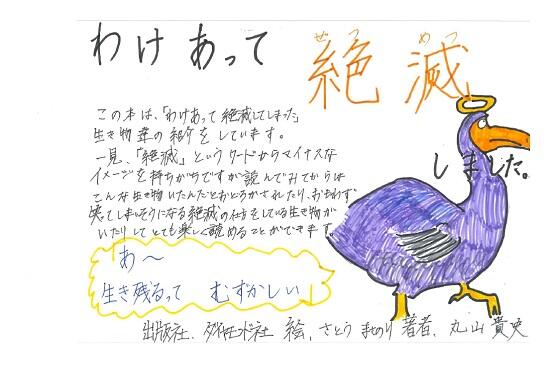 わけあって
絶滅
ぜつ めつ
しました。
この本は、「わけあって絶滅してしまった」
生き物達の紹介をしています。
一見、「絶滅」というワードからマイナスな
イメージを持ちがちですが読んでみてからは
こんな生き物いたんだとおどろかされたり、おもわず
笑てしまいそうになる絶滅の仕方をしている生き物が
いたりしてとても楽しく読めることができます。
あ〜
生き残るって むずかしい
出版社、ダイヤモンド社 絵、さとう まさのり 著者、丸山 貴史